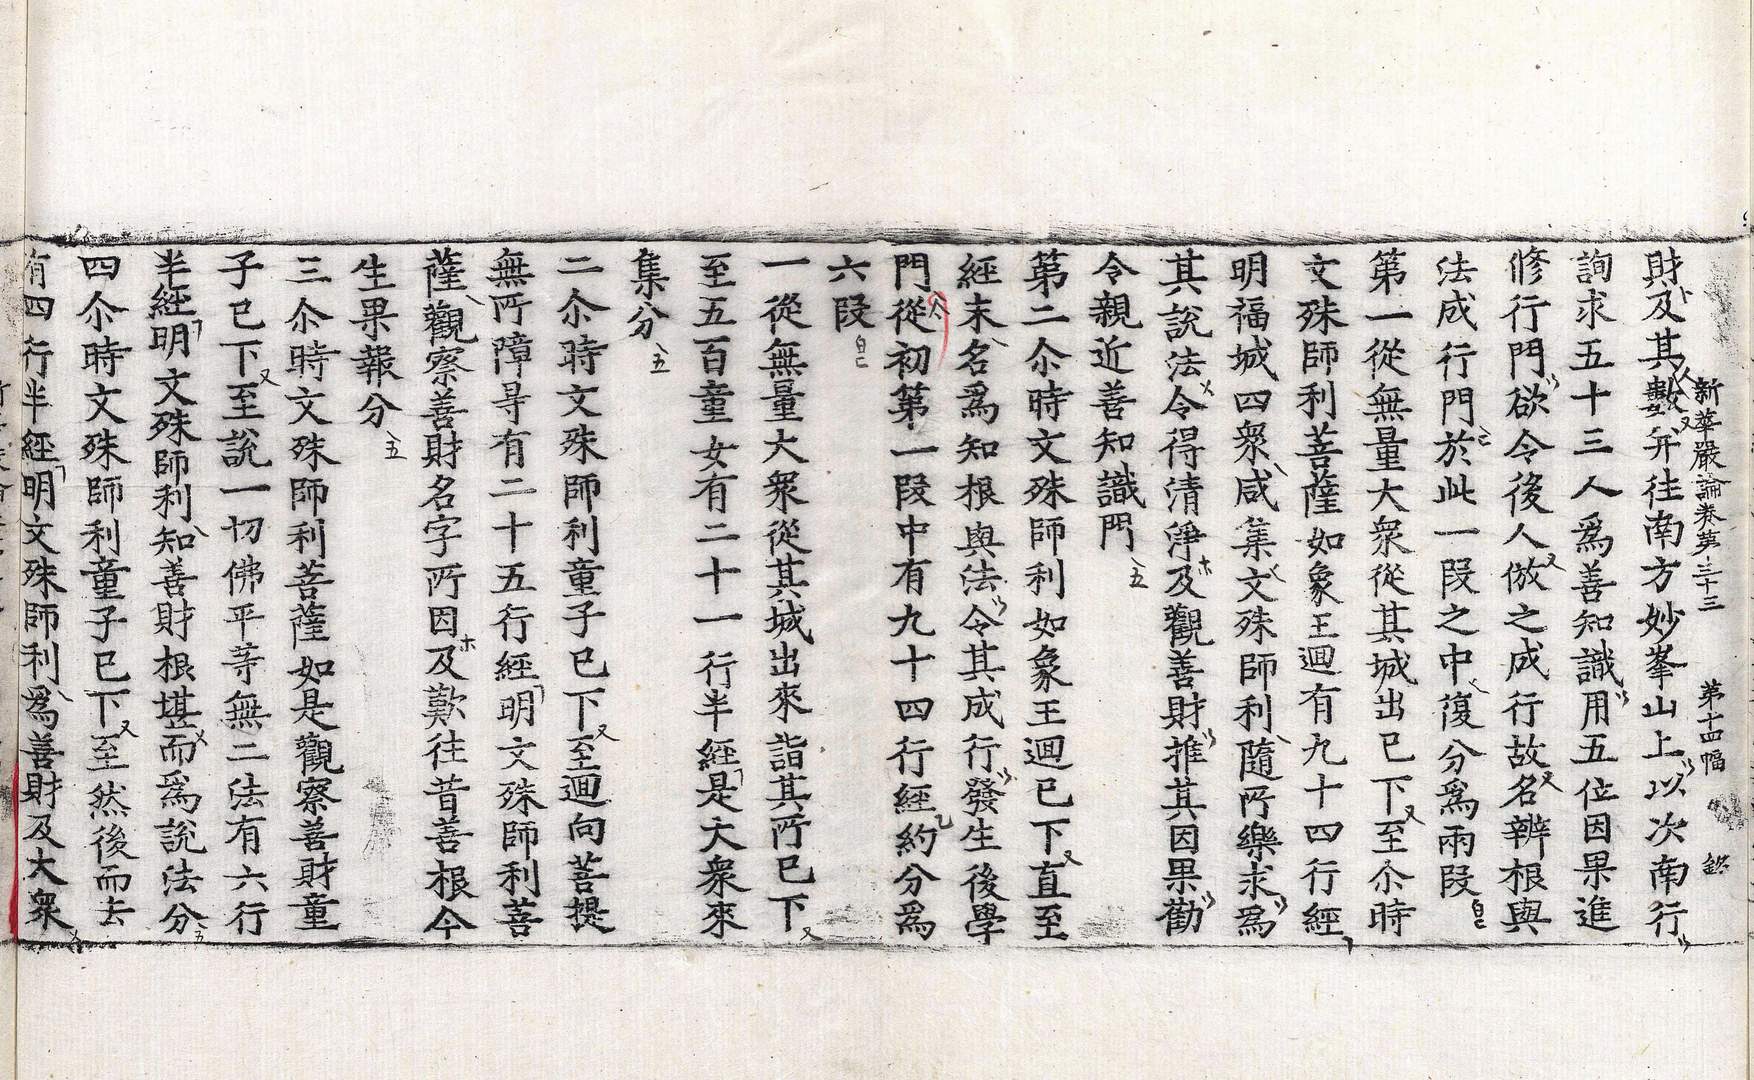 新華嚴論卷第三十三 第十四幅
財及其數并往南方妙峯山上以次南行
詢求五十三人爲善知識用五位因果進
修行門欲令後人倣之成行故名辨根與
法成行門於此一段之中復分爲兩段
第一從無量大衆從其城出已下至尒時
文殊師利菩薩如象王迴有九十四行經
明福城四衆咸集文殊師利隨所樂求爲
其說法令得清淨及觀善財推其因果勸
令親近善知識門
第二尒時文殊師利如象王迴已下直至
經末名爲知根與法令其成行發生後學
門從初第一段中有九十四行經約分爲
六段
一從無量大衆從其城出來詣其所已下
至五百童女有二十一行半經是大衆來
集分
二尒時文殊師利童子已下至迴向菩提
無所障㝵有二十五行經明文殊師利菩
薩觀察善財名字所因及歎往昔善根今
生果報分
三尒時文殊師利菩薩如是觀察善財童
子已下至說一切佛平等無二法有六行
半經明文殊師利知善財根堪而爲說法分
四尒時文殊師利童子已下至然後而去
有四行半經明文殊師利爲善財及大衆